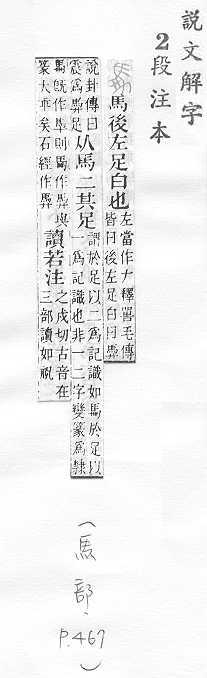 說文解字
2段注本
馵 馬後左足白也 左當作𠂇釋嘼毛傳
皆曰後左足白馵
說卦傳曰
震爲馵足 从馬二其足 謂於足以二爲記識如馬於足以
一爲記識也非一二字變篆爲隸
馬旣作 則馵作馵與
篆大乖矣石經作馵 讀若注 之戍切古音在
三部讀如祝
(馬部、P.467)